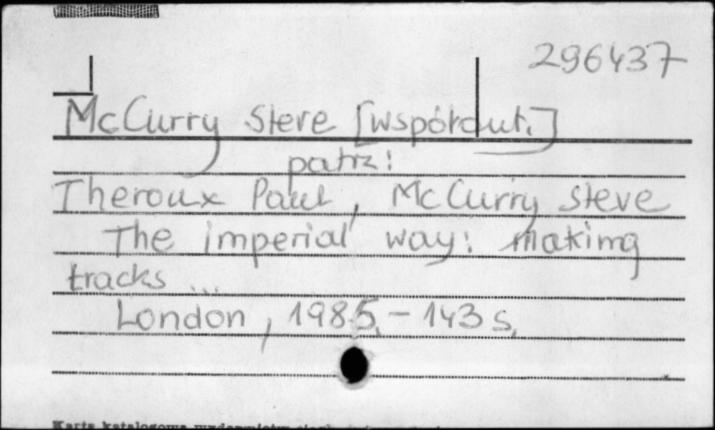 296437
McCurry Steve [współaut.]
patrz:
Theroux Paul, McCurry Steve
The imperial way: making
tracks ...
London, 1985. - 143 s.
Karta katalogowa